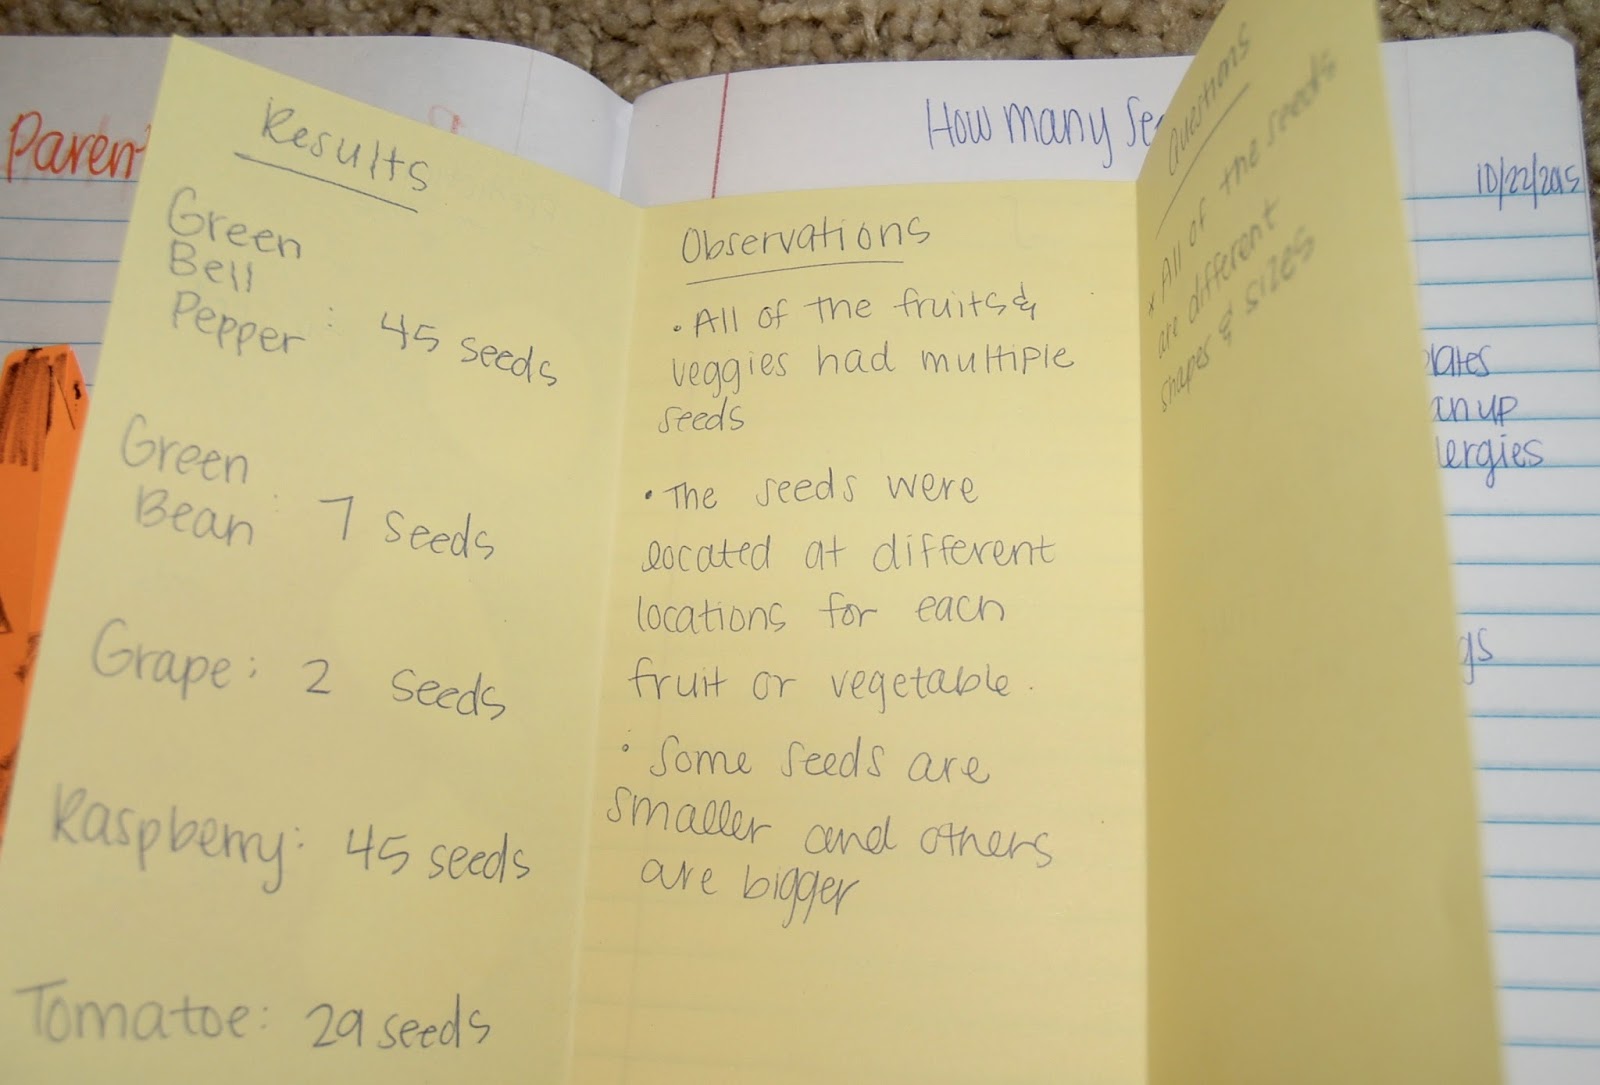 Paren
Results
Green
Bell
Pepper : 45 seeds
Green
Bean : 7 seeds
Grape: 2 seeds
Raspberry: 45 seeds
Tomatoe: 29 seeds
How many se
10/22/2015
Observations
• All of the fruits &
veggies had multiple
seeds
• The seeds were
located at different
locations for each
fruit or vegetable.
• Some seeds are
smaller and others
are bigger
Questions
x All of the seeds
are different
shapes & sizes
lates
an up
lergies
gs